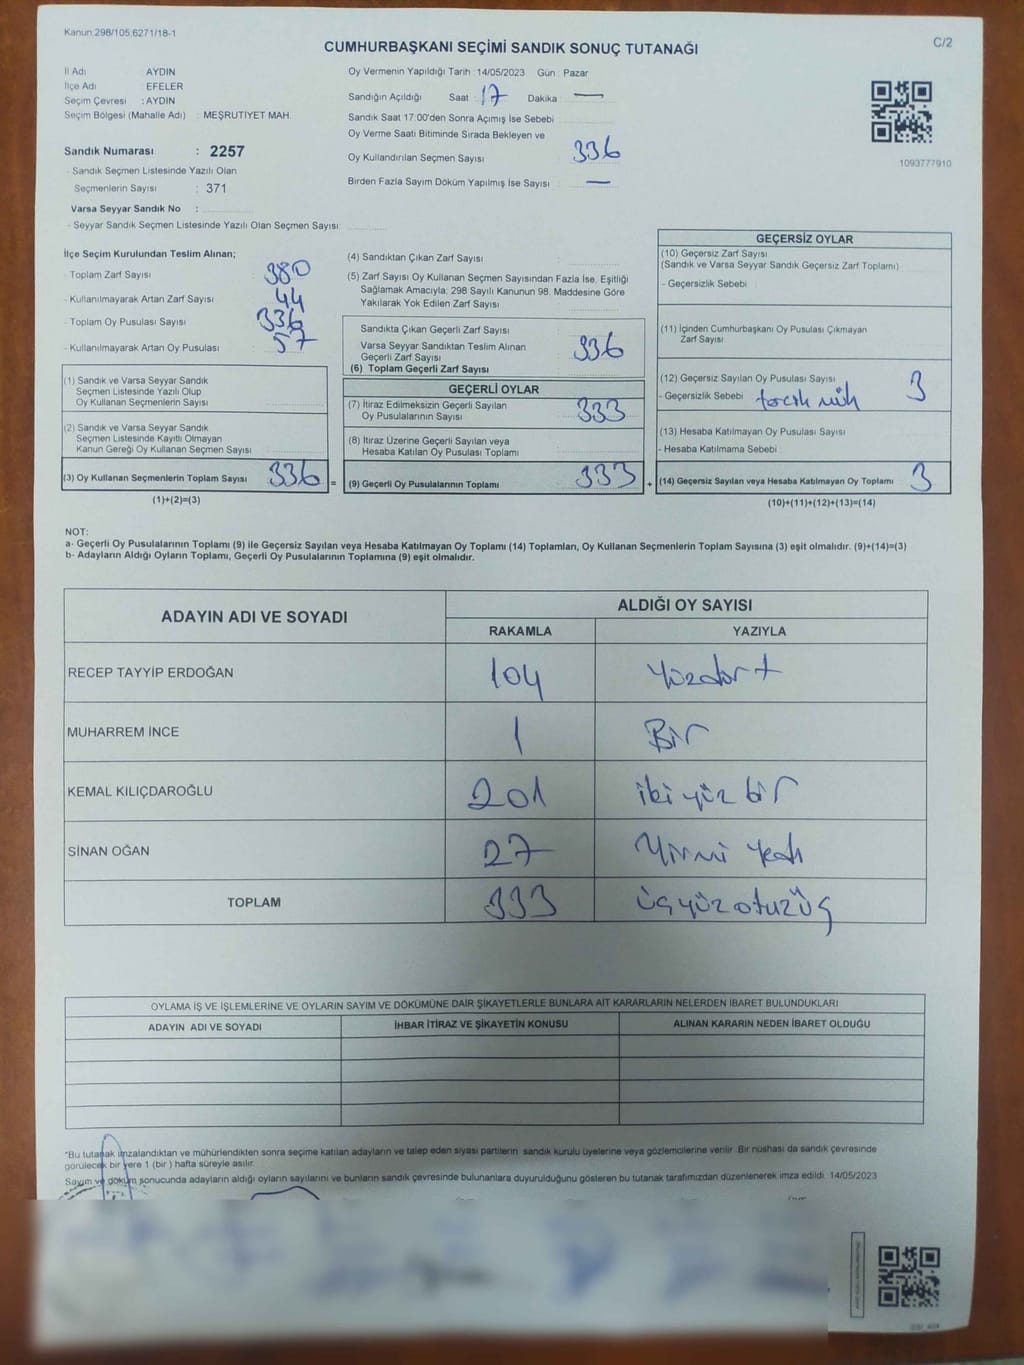 Kanun 298/105,6271/18-1
C/2
CUMHURBAŞKANI SEÇİMİ SANDIK SONUÇ TUTANAĞI
İl Adı AYDIN
İlçe Adı EFELER
Seçim Çevresi : AYDIN
Seçim Bölgesi (Mahalle Adı) : MEŞRUTİYET MAH.
Sandık Numarası : 2257
- Sandık Seçmen Listesinde Yazılı Olan
Seçmenlerin Sayısı : 371
Varsa Seyyar Sandık No :
- Seyyar Sandık Seçmen Listesinde Yazılı Olan Seçmen Sayısı:
Oy Vermenin Yapıldığı Tarih : 14/05/2023 Gün : Pazar
Sandığın Açıldığı Saat 17 Dakika —
Sandık Saat 17:00'den Sonra Açımış İse Sebebi
Oy Verme Saati Bitiminde Sırada Bekleyen ve
Oy Kullandırılan Seçmen Sayısı 336
Birden Fazla Sayım Döküm Yapılmış İse Sayısı —
1093777910
İlçe Seçim Kurulundan Teslim Alınan;
- Toplam Zarf Sayısı 380
- Kullanılmayarak Artan Zarf Sayısı 44
- Toplam Oy Pusulası Sayısı 336
- Kullanılmayarak Artan Oy Pusulası 57
(1) Sandık ve Varsa Seyyar Sandık
Seçmen Listesinde Yazılı Olup
Oy Kullanan Seçmenlerin Sayısı
(2) Sandık ve Varsa Seyyar Sandık
Seçmen Listesinde Kayıtlı Olmayan
Kanun Gereği Oy Kullanan Seçmen Sayısı
(3) Oy Kullanan Seçmenlerin Toplam Sayısı 336 =
(1)+(2)=(3)
(4) Sandıktan Çıkan Zarf Sayısı
(5) Zarf Sayısı Oy Kullanan Seçmen Sayısından Fazla İse, Eşitliği
Sağlamak Amacıyla; 298 Sayılı Kanunun 98. Maddesine Göre
Yakılarak Yok Edilen Zarf Sayısı
Sandıkta Çıkan Geçerli Zarf Sayısı
Varsa Seyyar Sandıktan Teslim Alınan
Geçerli Zarf Sayısı 336
(6) Toplam Geçerli Zarf Sayısı
GEÇERLİ OYLAR
(7) İtiraz Edilmeksizin Geçerli Sayılan
Oy Pusulalarının Sayısı 333
(8) İtiraz Üzerine Geçerli Sayılan veya
Hesaba Katılan Oy Pusulası Toplamı
(9) Geçerli Oy Pusulalarının Toplamı 333 +
GEÇERSİZ OYLAR
(10) Geçersiz Zarf Sayısı
(Sandık ve Varsa Seyyar Sandık Geçersiz Zarf Toplamı)
- Geçersizlik Sebebi :
(11) İçinden Cumhurbaşkanı Oy Pusulası Çıkmayan
Zarf Sayısı
(12) Geçersiz Sayılan Oy Pusulası Sayısı 3
- Geçersizlik Sebebi
(13) Hesaba Katılmayan Oy Pusulası Sayısı
- Hesaba Katılmama Sebebi
(14) Geçersiz Sayılan veya Hesaba Katılmayan Oy Toplamı 3
(10)+(11)+(12)+(13)=(14)
NOT:
a- Geçerli Oy Pusulalarının Toplamı (9) ile Geçersiz Sayılan veya Hesaba Katılmayan Oy Toplamı (14) Toplamları, Oy Kullanan Seçmenlerin Toplam Sayısına (3) eşit olmalıdır. (9)+(14)=(3)
b- Adayların Aldığı Oyların Toplamı, Geçerli Oy Pusulalarının Toplamına (9) eşit olmalıdır.
ADAYIN ADI VE SOYADI ALDIĞI OY SAYISI
RAKAMLA YAZIYLA
RECEP TAYYİP ERDOĞAN 104 Yüzdört
MUHARREM İNCE 1 Bir
KEMAL KILIÇDAROĞLU 201 iki yüz bir
SİNAN OĞAN 27 Yirmi yedi
TOPLAM 333 üçyüzotuzüç
OYLAMA İŞ VE İŞLEMLERİNE VE OYLARIN SAYIM VE DÖKÜMÜNE DAİR ŞİKAYETLERLE BUNLARA AİT KARARLARIN NELERDEN İBARET BULUNDUKLARI
ADAYIN ADI VE SOYADI İHBAR İTİRAZ VE ŞİKAYETİN KONUSU ALINAN KARARIN NEDEN İBARET OLDUĞU
*Bu tutanak imzalandıktan ve mühürlendikten sonra seçime katılan adayların ve talep eden siyasi partilerin sandık kurulu üyelerine veya gözlemcilerine verilir. Bir nüshası da sandık çevresinde
görülecek bir yere 1 (bir) hafta süreyle asılır.
Sayım ve döküm sonucunda adayların aldığı oyların sayılarını ve bunların sandık çevresinde bulunanlara duyurulduğunu gösteren bu tutanak tarafımızdan düzenlenerek imza edildi. 14/05/2023